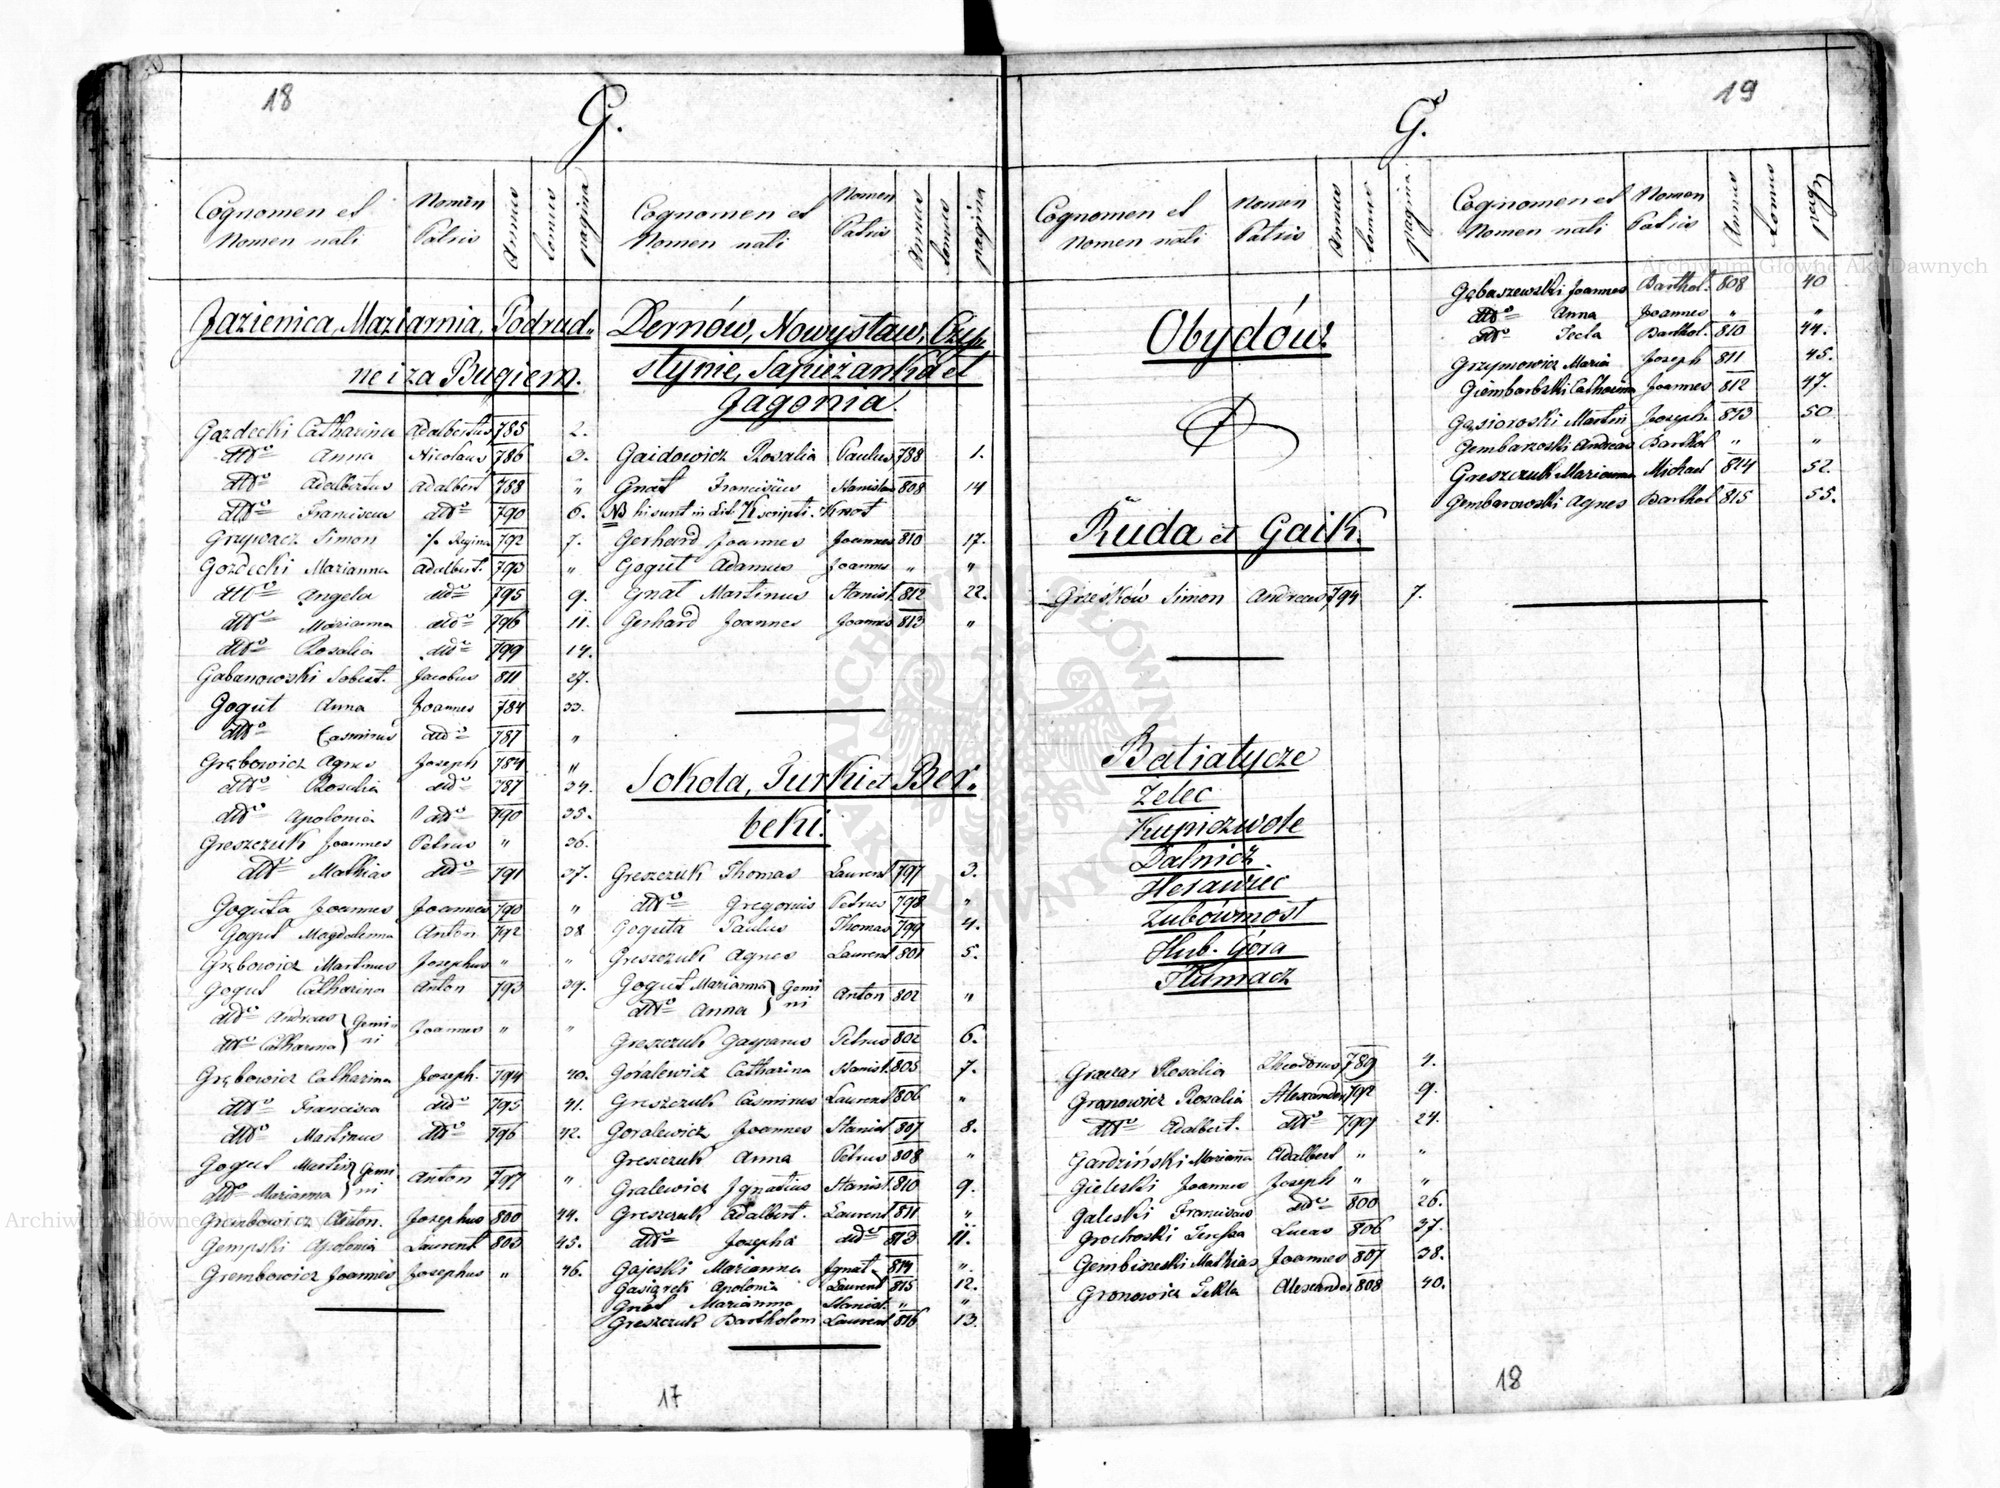 18
G.
Cognomen et Nomen nati
Nomen Patris
Annus
tomus
pagina
Jazienica, Maziarnia, Podrud-
ne i za Bugiem.
Gazdecki Catharina Adalbertus 785 2.
dtto Anna Nicolaus 786 3.
dtto Adalbertus Adalbert 788 "
dtto Franciscus dtto 790 6.
Grzywacz Simon % Regina 792 7.
Gozdecki Marianna Adalbert. 793 "
dtto Angela dtto 795 9.
dtto Marianna dtto 796 11.
dtto Rosalia dtto 799 14.
Gabanowski Sobest. Jacobus 811 27.
Gogut Anna Joannes 784 33.
dtto Casmirus dtto 787 "
Grębowicz Agnes Joseph 784 "
dtto Rosalia dtto 787 34.
dtto Apolonia dtto 790 35.
Greszczuk Joannes Petrus " 36.
dtto Mathias dtto 791 37.
Goguta Joannes Joannes 790 "
Gogut Magdalenna Anton 792 38
Grębowicz Martinus Josephus " "
Gogut Catharina Anton 793 39.
dtto Andreas } Gemi-
dtto Catharina } ni Joannes " "
Grębowicz Catharina Joseph. 794 40.
dtto Francisca dtto 795 41.
dtto Martinus dtto 796 42.
Gogut Martin } Gemi
dtto Marianna } ni Anton 797 "
Grembowicz Anton. Josephus 800 44.
Gempski Apolonia Laurent 803 45.
Grembowicz Joannes Josephus " 46.
Cognomen et Nomen nati
Nomen Patris
Annus
tomus
pagina
Dernów, Nowystaw, Czy-
stynie, Sapieżanka et
Jagonia.
Gaidowicz Rosalia Paulus 788 1.
Gnat Franciscus Stanislaus 808 14
NB hi sunt in Lit. K scripti. Knot
Gerhard Joannes Joannes 810 17.
Gogut Adamus Joannes " "
Gnat Martinus Stanisl. 812 22.
Gerhard Joannes Joannes 813 "
Sokola, Turki et Ber-
beki.
Greszczuk Thomas Laurent 797 3.
dtto Gregorius Petrus 798 "
Goguta Paulus Thomas 799 4.
Greszczuk Agnes Laurent 801 5.
Gogut Marianna } Gemi
dtto Anna } ni Anton 802 "
Greszczuk Gasparus Petrus 802 6.
Góralewicz Catharina Stanisl. 805 7.
Greszczuk Casmirus Laurent 806 "
Goralewicz Joannes Stanisl 807 8.
Greszczuk Anna Petrus 808 "
Gralewicz Ignatius Stanisl. 810 9.
Greszczuk Adalbert. Laurent 811 "
dtto Josepha dtto 813 11.
Gajeski Marianna Ignat. 814 "
Gasiąrek Apolonia Laurent 815 12.
Gnat Marianna Stanisl. " "
Greszczuk Bartholom Laurent 816 13.
17
19
G.
Cognomen et Nomen nati
Nomen Patris
Annus
tomus
pagina
Obydów.
Ruda et Gaik.
Grześków Simon Andreas 794 7.
Batiatycze
Żelec
Kupiczwole
Dalnicz
Herawiec
Zubówmost
Hub. Góra
Tłumacz
Graczar Rosalia Theodorus 789 4.
Gronowicz Rosalia Alexander 792 9.
dtto Adalbert. dtto 799 24.
Gardziński Marianna Adalbert " "
Gieleski Joannes Joseph " "
Galeski Franciscus dtto 800 26.
Grochoski Teressa Lucas 806 37.
Gembiszeski Mathias Joannes 807 38.
Gronowicz Tekla Alexander 808 40.
Cognomen et Nomen nati
Nomen Patris
Annus
tomus
pagina
Gębaszewski Joannes Barthol. 808 40
dtto Anna Joannes " "
dtto Tecla Barthol. 810 44.
Grzymowicz Maria Joseph 811 45.
Giembaroski Catharina Joannes 812 47.
Gąsioroski Martin Joseph. 813 50
Gembaroski Andreas Barthol " "
Greszczuk Marianna Michael 814 52.
Gembarowski Agnes Barthol 815 55.
18
Archiwum Główne Akt Dawnych